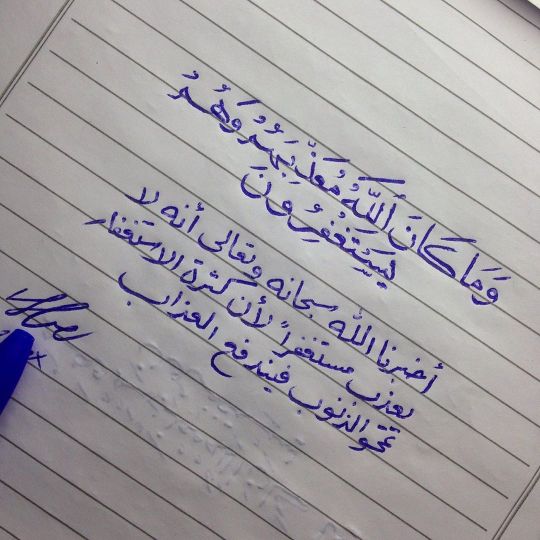 وَمَا كَانَ اللَّهُ مُعَذِّبَهُمْ وَهُمْ
يَسْتَغْفِرُونَ
أخبرنا الله سبحانه وتعالى أنه لا
يعذب مستغفراً لأن كثرة الاستغفار
تمحو الذنوب فيندفع العذاب